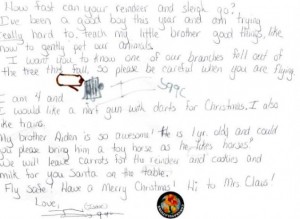 How fast can your reindeer and sleigh go?
I've been a good boy this year and am trying
really hard to teach my little brother good things, like
how to gently pet our animals.
I want you to know one of our branches fell out of
the tree this fall, so please be careful when you are flying.
I am 4 and
I would like a nerf gun with darts for Christmas. I also
like trains.
My brother Aiden is so awesome! He is 1 yr. old and could
you please bring him a toy horse as he rides horses
We will leave carrots for the reindeer and cookies and
milk for you Santa on the table.
Fly safe! Have a Merry Christmas! Hi to Mrs Claus!
Love,